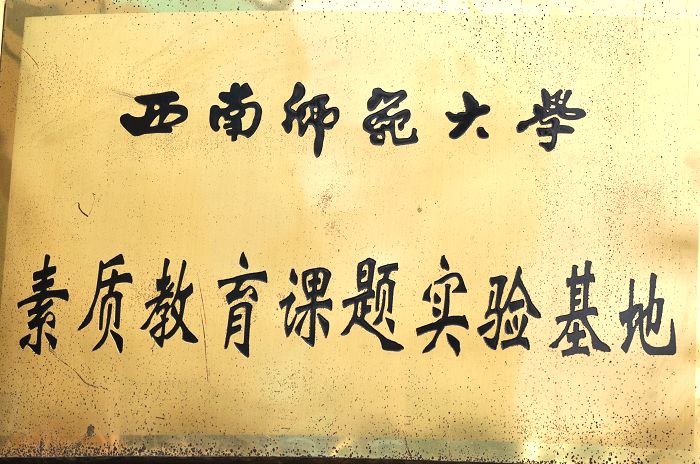 西南师范大學
素质教育课题实验基地